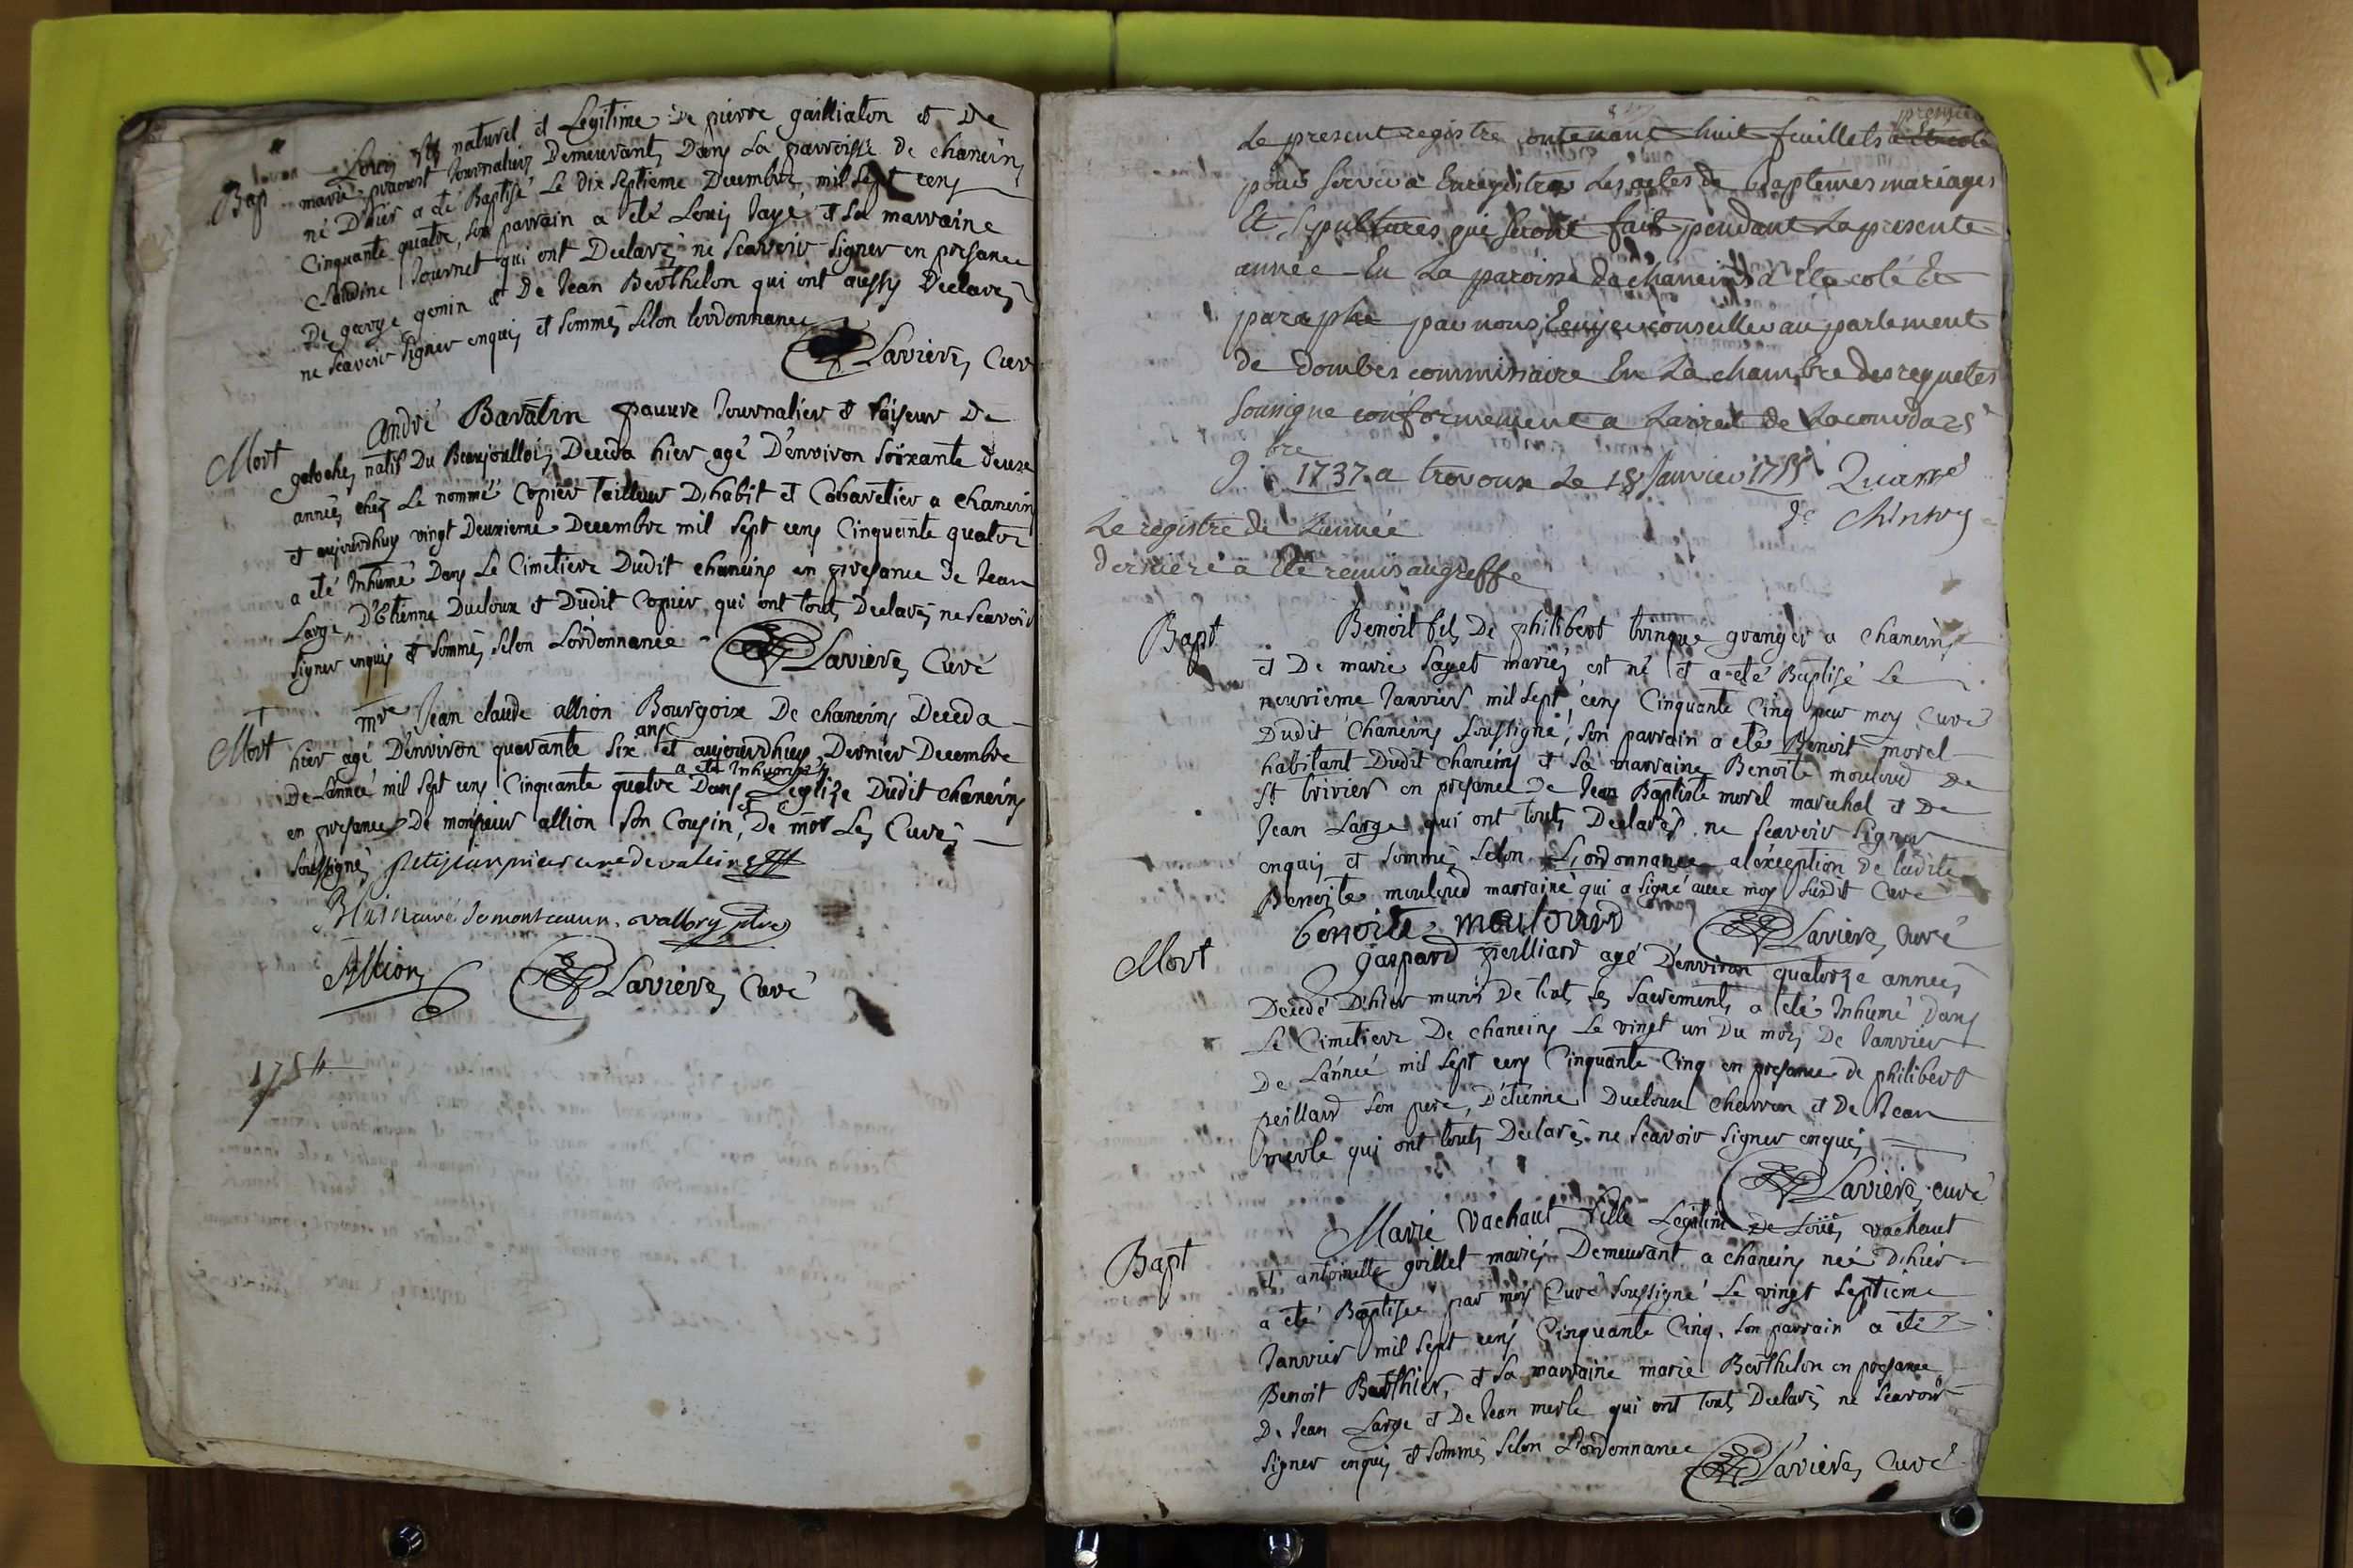 Bap Louis fils naturel et Legitime De pierre gailliaton et De
marie pravost Journaliers Demeurants Dans La parroisse de chaneins
né D'hier a été Baptisé Le dix septieme Decembre mil sept cens
Cinquante quatre, son parrain a été Louis Jayé et sa marraine
Claudine Journet qui ont Declarés ne scavoir signer en presance
De george genin et De Jean Berthelon qui ont aussy Declarés
ne scavoir signer enquis et sommés selon lordonnance
Lavieres Curé
Mort André Baratin pauvre Journalier et faiseur De
galoches natif Du Beaujollois Deceda hier agé D'environ soixante deuze
années chez Le nommé Copier tailleur D'habit et Cabaretier a chaneins
et aujourdhuy vingt Deuxieme Decembre mil sept cens Cinquante quatre
a été Inhumé Dans Le Cimetiere Dudit chaneins en presance de Jean
Large, D'Etienne Ducloux et Dudit Copier, qui ont touts Declarés ne scavoir
signer enquis et sommés selon L'ordonnance Lavieres Curé
Mort mre Jean claude allion Bourgoix De chaneins Deceda
hier agé D'environ quarante six ans et aujourdhuy Dernier Decembre
De L'année mil sept cens Cinquante quatre a été Inhumé Dans L'eglize Dudit chaneins
en presance De monsieur allion son Cousin, et De mrs Les Curés
soussignés petitjean prieur curé de valeins
Blain curé de montceaux. vallory ptre
Allion Lavieres Curé
1754
premier
Le present registre contenant huit feuillets
pour servir a Enregistrer Les actes de baptemes mariages
Et sepultures qui seront fait pendant La presente
année En La paroisse de chaneins a Eté coté Et
paraphé par nous, Ecuyer conseiller au parlement
de dombes commissaire En La chambre des requetes
soussigné conformement a Larret de La cour du 25
9.bre 1737. a trevoux Le 18 Janvier 1755 Quarré
de Chintry
Le registre de L'année
derniere a Eté remis au greffe
Bapt Benoit fils De philibert trinque granger a chaneins
et De marie sayet mariés est né et a été Baptisé Le
neuvième Janvier mil sept cens Cinquante Cinq par moy Curé
Dudit Chaneins soussigné, son parrain a été Benoit morel
habitant Dudit Chaneins et sa marraine Benoite mouloud De
St trivier en presance De Jean Baptiste morel marechal et De
Jean Large qui ont touts Declarés ne scavoir signer
enquis et sommés selon L'ordonnance a l'exception De ladite
Benoite mouloud marraine qui a signé avec moy susdit Curé
benoite moulourd Lavieres Curé
Mort gaspard peilliard agé D'environ quatorze années
Decedé D'hier munis De touts les sacrements a été Inhumé Dans
Le Cimetiere De chaneins Le vingt un Du mois De Janvier
De L'année mil sept cens Cinquante Cinq en presance de philibert
peillard son pere, D'etienne Ducloux charron et De Jean
merle qui ont touts Declarés ne scavoir signer enquis
Lavieres curé
Bapt Marie vachaut fille Legitime De Loüis vachaut
et antoinette goillet mariés Demeurant a chaneins née D'hier
a été Baptisée par moy Curé soussigné Le vingt septiéme
Janvier mil sept cens Cinquante Cinq, son parrain a été
Benoit Barthier, et sa marraine marie Berthelon en presance
De Jean Large et De Jean merle qui ont touts Declarés ne scavoir
signer enquis et sommés selon L'ordonnance Lavieres Curé